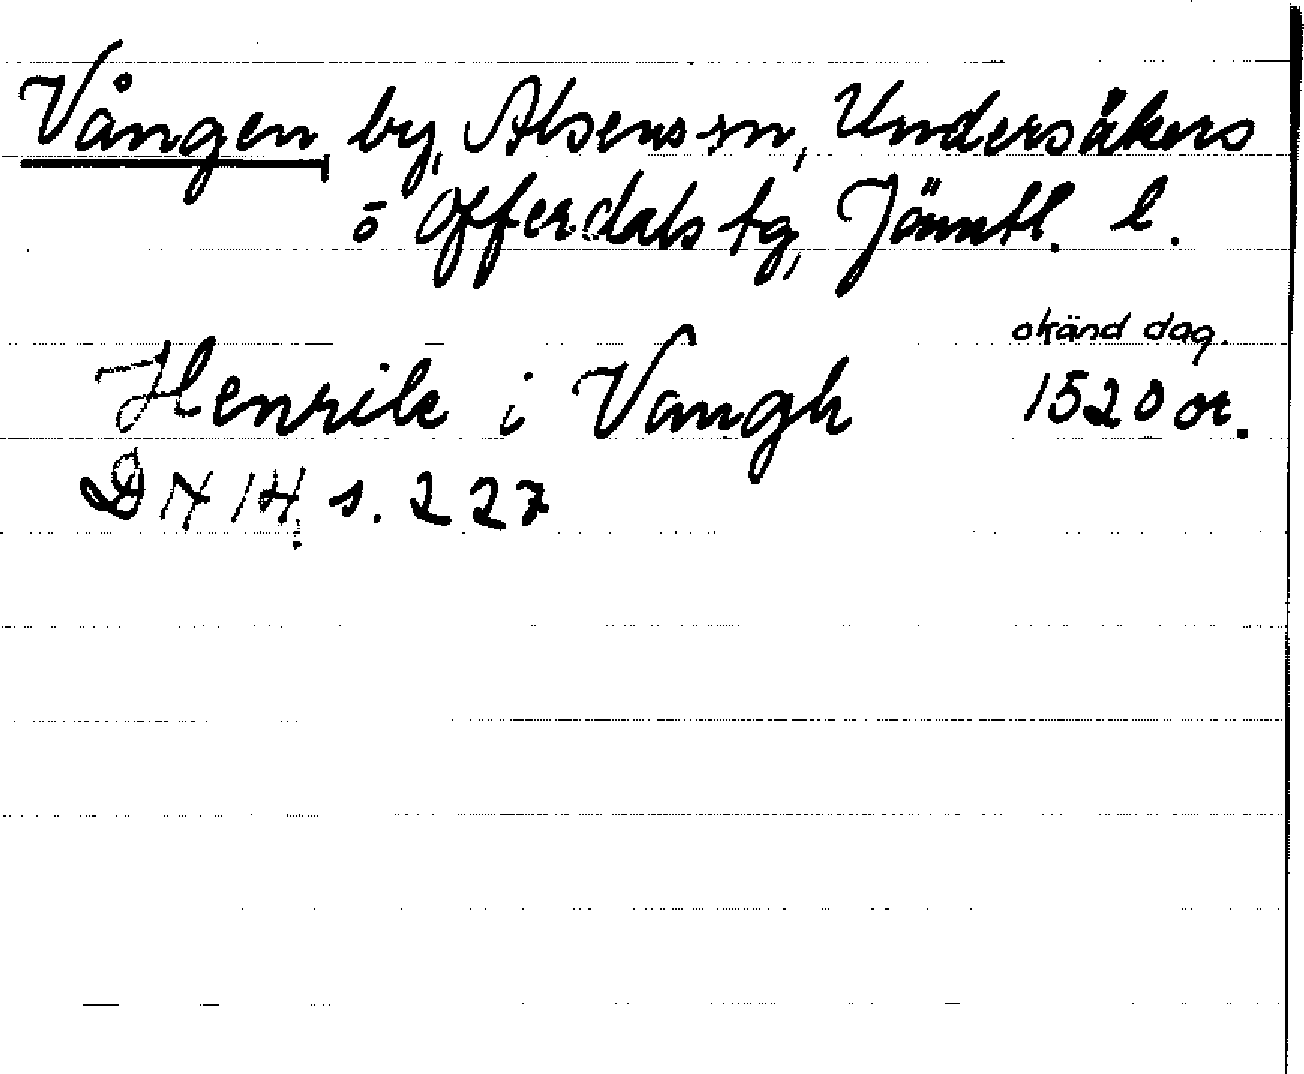 Vången, by, Alsens sn, Undersåkers
o Offerdals tg, Jämtl. l.
okänd dag.
Henrik i Vangh 1520 or.
DN 14, s. 227